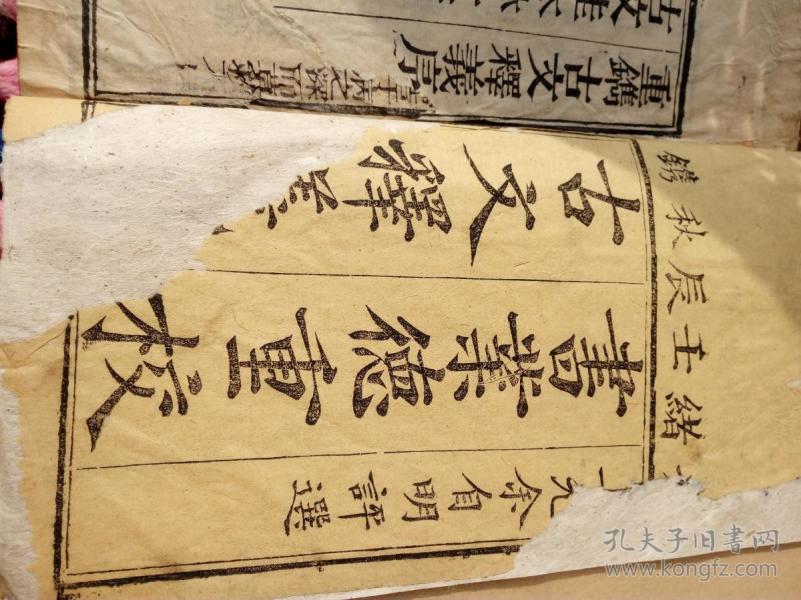 緒壬辰秋鐫
元余自明評選
書業德重校
古文釋義
重鐫古文釋義序
孔夫子旧書网
www.kongfz.com